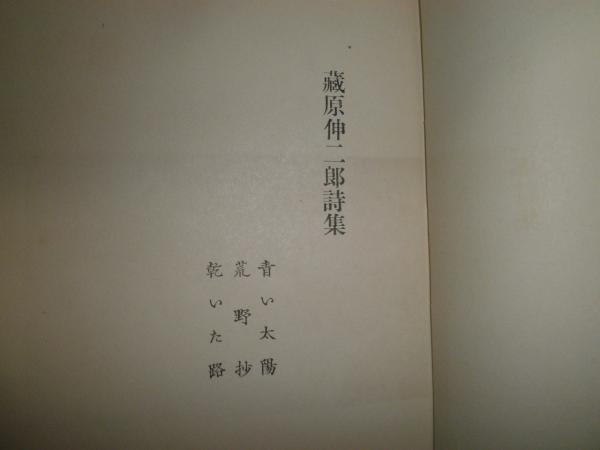 藏原伸二郎詩集
青い太陽
荒野抄
乾いた路